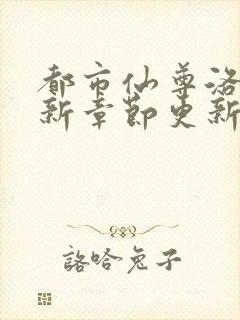 都市仙尊洛
新章节更新
詻哈兔子